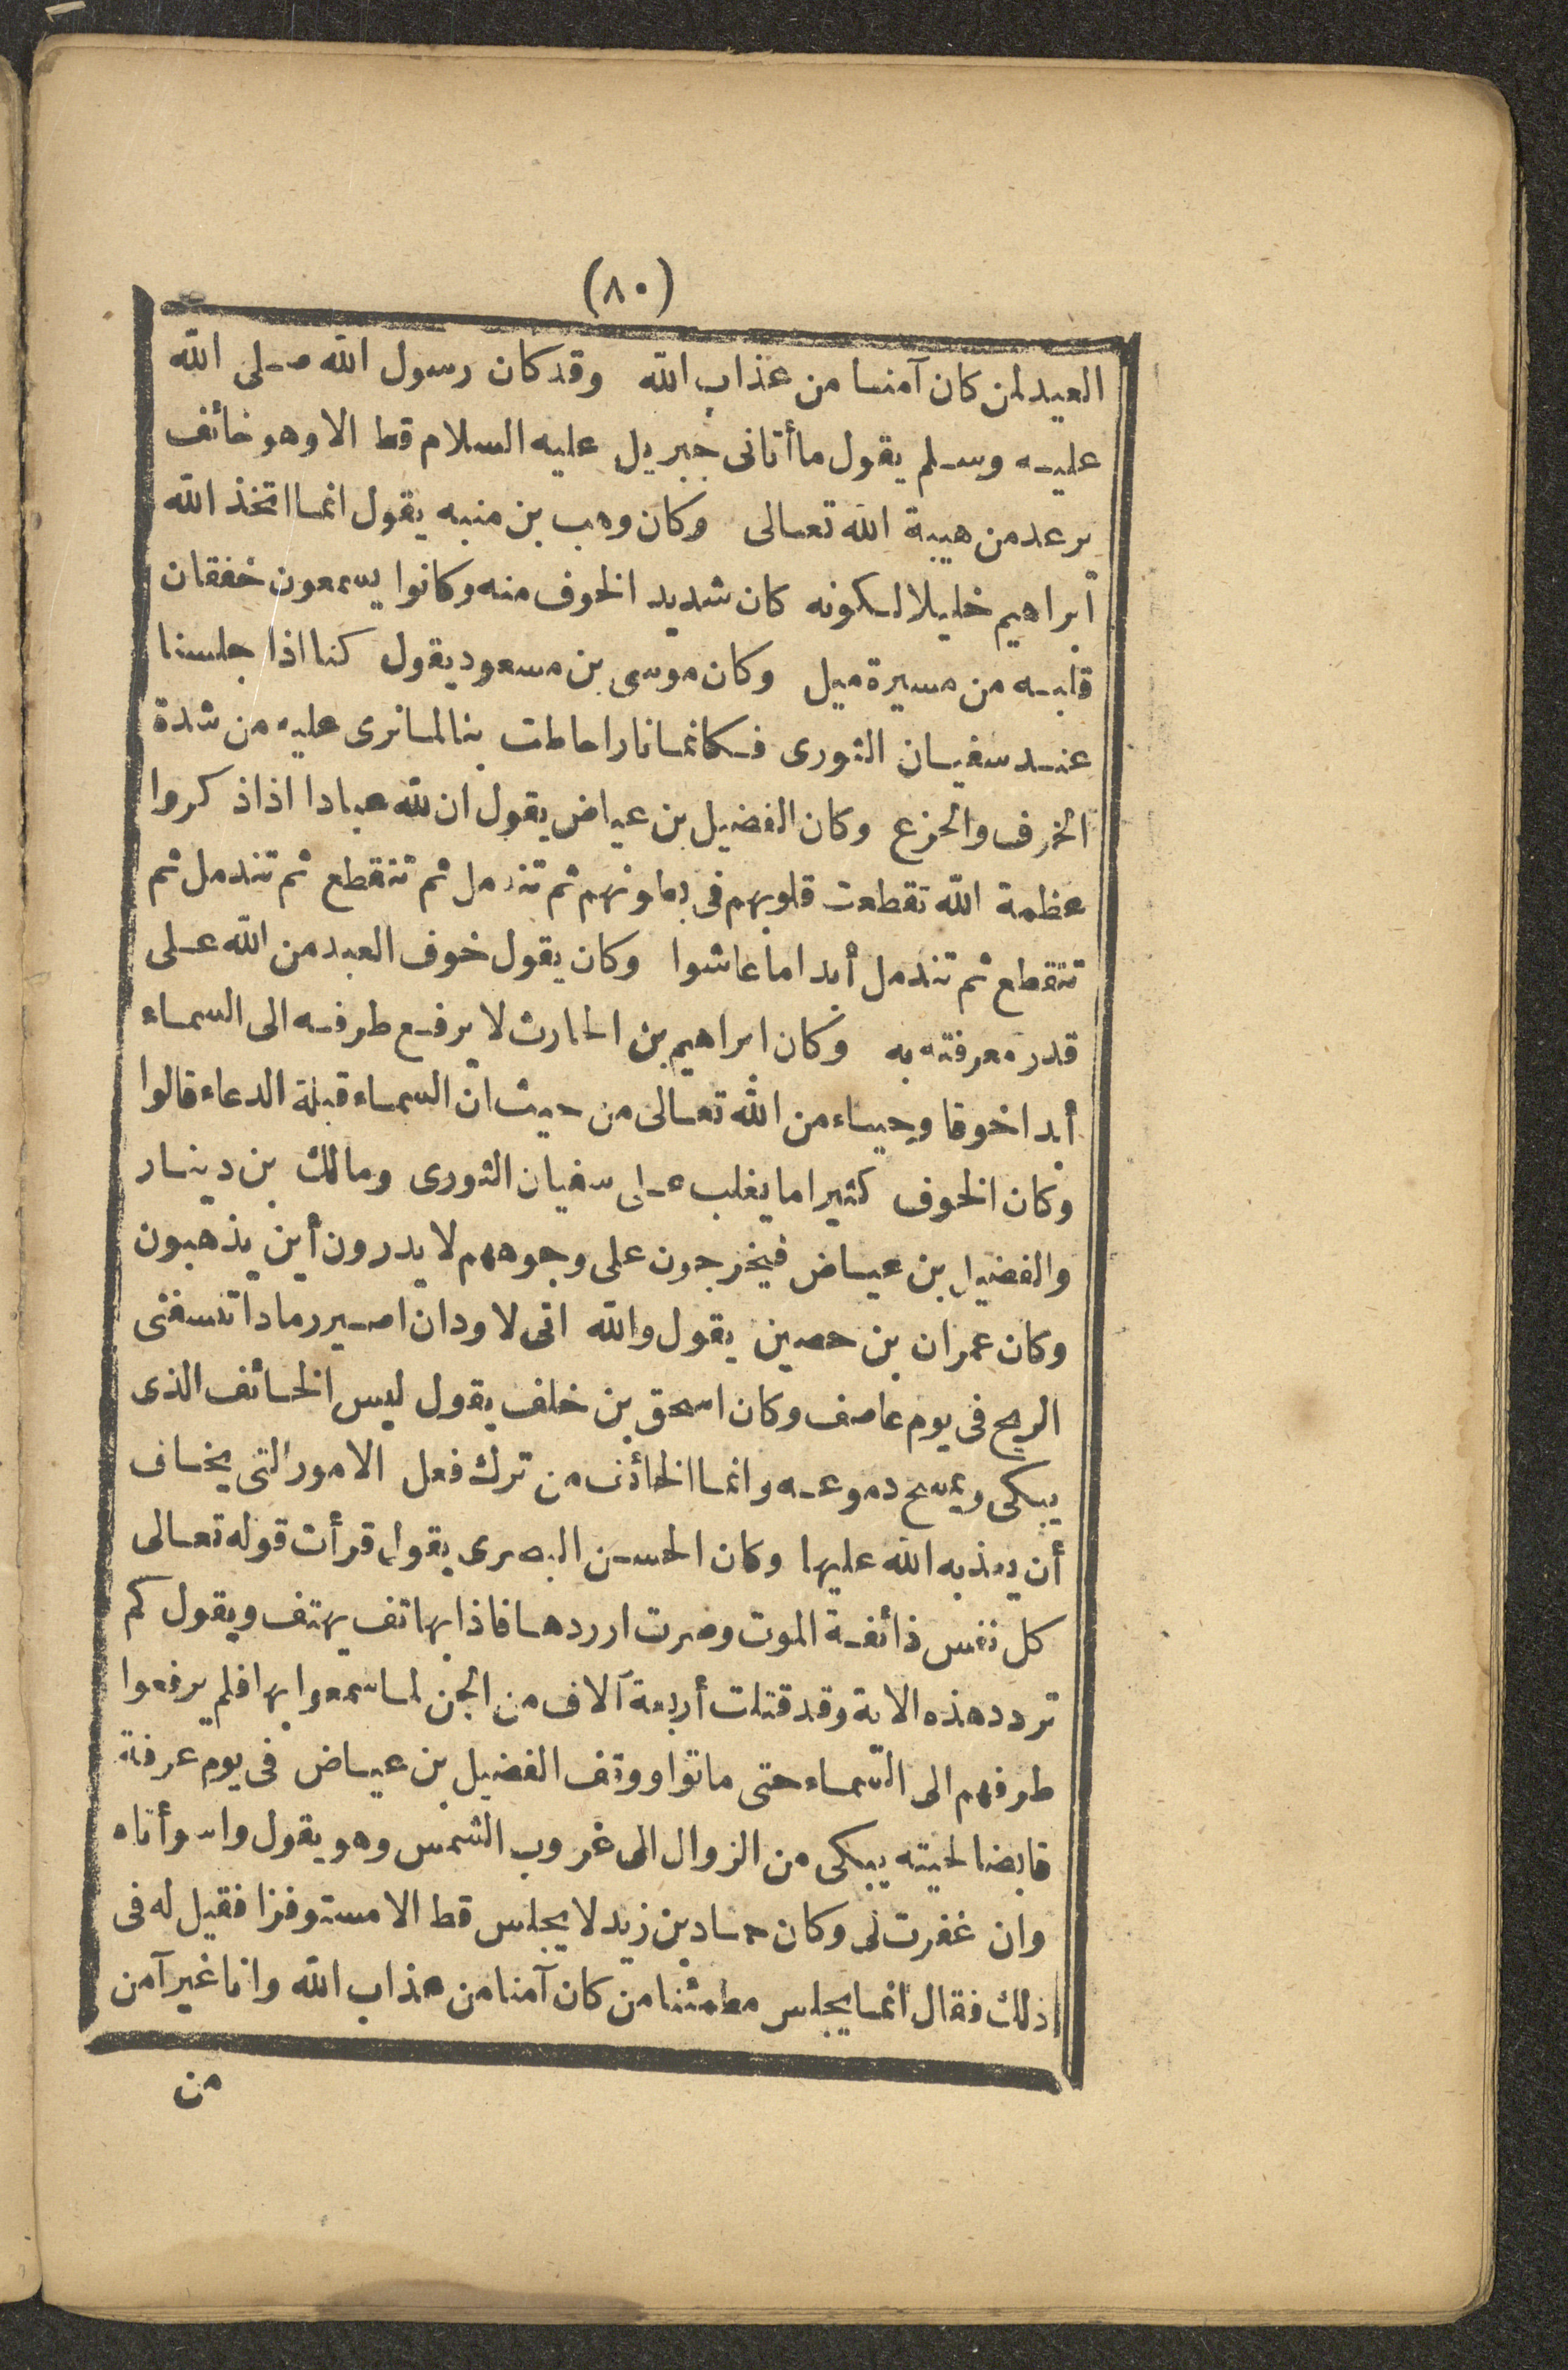 (٨٠)
العيد لمن كان آمنا من عذاب الله وقد كان رسول الله صلى الله
عليه وسلم يقول ما أتانى جبريل عليه السلام قط الا وهو خائف
يرعد من هيبة الله تعالى وكان وهب بن منبه يقول انما اتخذ الله
ابراهيم خليلا لكونه كان شديد الخوف منه وكانوا يسمعون خفقان
قلبه من مسيرة ميل وكان موسى بن مسعود يقول كنا اذا جلسنا
عند سفيان الثورى فكانما نارا احاطت بنا لما نرى عليه من شدة
الخوف والجزع وكان الفضيل بن عياض يقول ان لله عبادا اذا ذكروا
عظمة الله تقطعت قلوبهم فى بطونهم ثم تندمل ثم تتقطع ثم تندمل ثم
تتقطع ثم تندمل أبدا ما عاشوا وكان يقول خوف العبد من الله على
قدر معرفته به وكان ابراهيم بن الحارث لا يرفع طرفه الى السماء
أبدا خوفا وحياء من الله تعالى من حيث ان السماء قبلة الدعاء قالوا
وكان الخوف كثيرا ما يغلب على سفيان الثورى ومالك بن دينار
والفضيل بن عياض فيخرجون على وجوههم لا يدرون أين يذهبون
وكان عمران بن حصين يقول والله انى لاود ان اصير رمادا تنسفنى
الريح فى يوم عاصف وكان اسحق بن خلف يقول ليس الخائف الذى
يبكى ويمسح دموعه وانما الخائف من ترك فعل الامور التى يخاف
أن يعذبه الله عليها وكان الحسن البصرى يقول قرأت قوله تعالى
كل نفس ذائقة الموت وصرت ارددها فاذا بهاتف يهتف ويقول كم
تردد هذه الاية وقد قتلت أربعة آلاف من الجن لما سمعوا بها فلم يرفعوا
طرفهم الى السماء حتى ماتوا ووقف الفضيل بن عياض فى يوم عرفة
قابضا لحيته يبكى من الزوال الى غروب الشمس وهو يقول واسوأتاه
وان غفرت لى وكان حماد بن زيد لا يجلس قط الا مستوفزا فقيل له فى
ذلك فقال انما يجلس مطمئنا من كان آمنا من عذاب الله وانا غير آمن
من